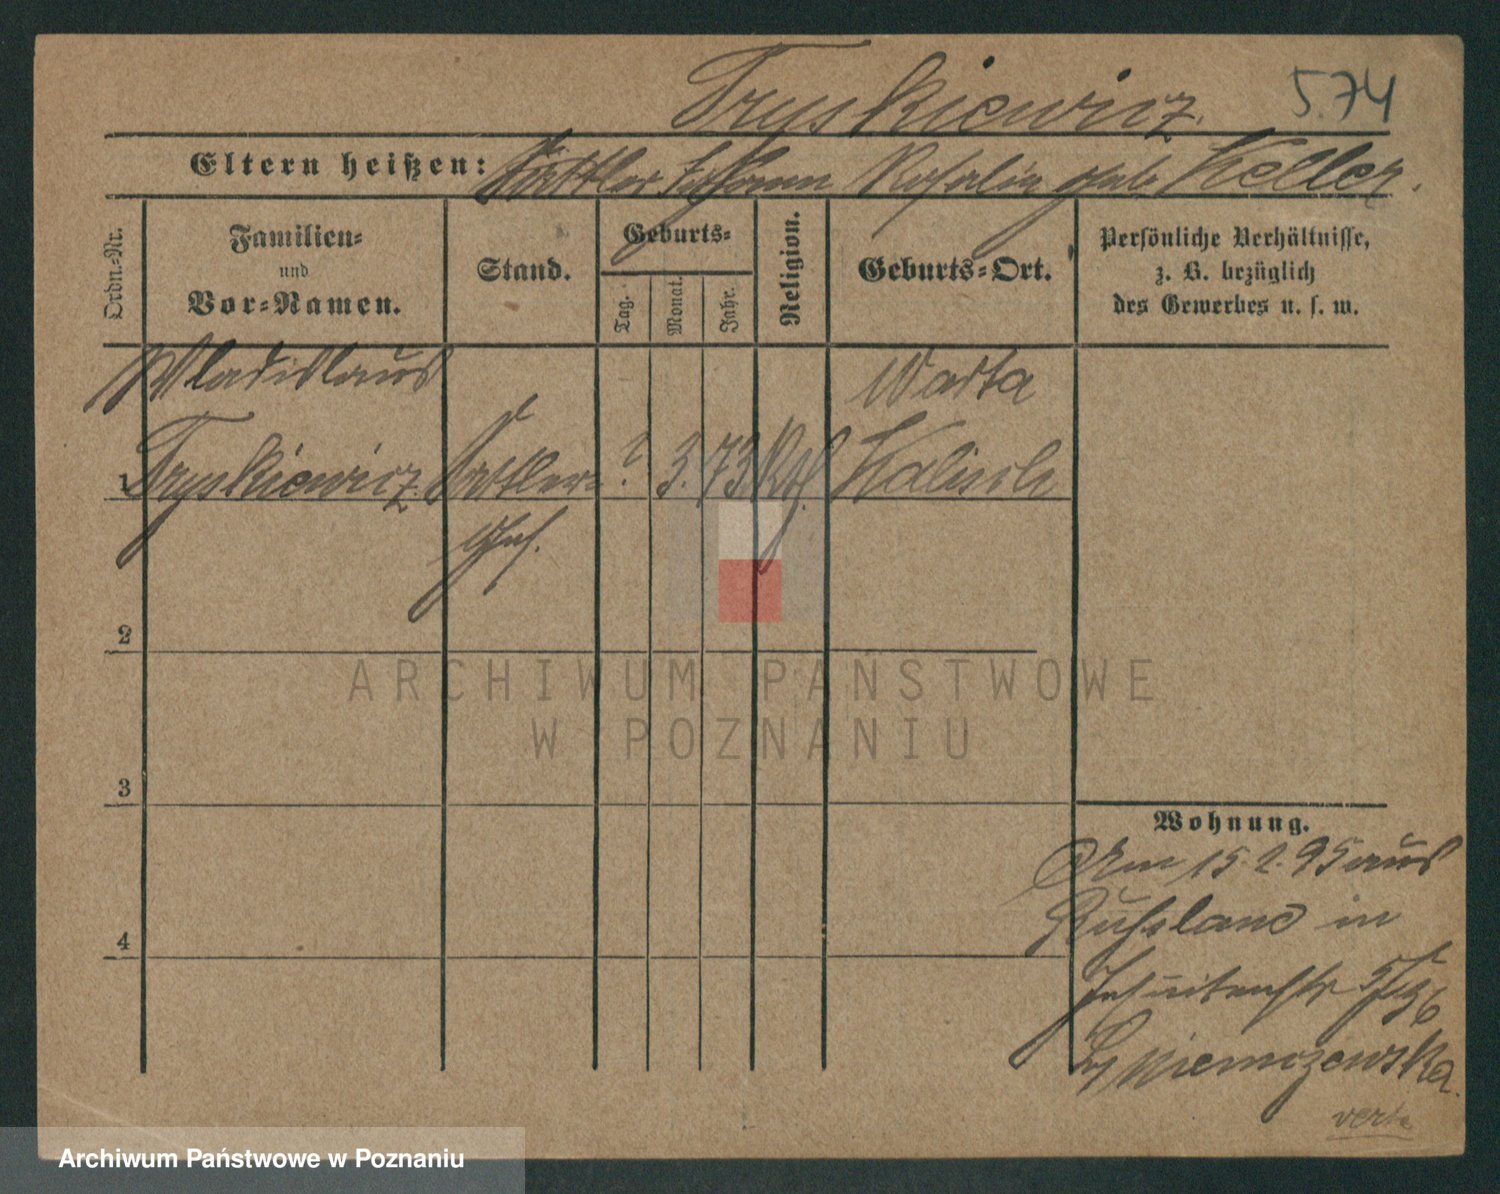 Tryskiewicz. 574
Eltern heißen: Sattler Johann Rosalia geb Keller.
Ordn.-Nr.
Familien-
und
Vor-Namen.
Stand.
Geburts-
Tag.
Monat.
Jahr.
Religion.
Geburts-Ort.
Persönliche Verhältnisse,
z. B. bezüglich
des Gewerbes u. s. w.
Wladislaus Warta
1 Tryskiewicz Sattler- ? 3. 73 Kth Kalisch
Geh.
2
ARCHIWUM PAŃSTWOWE
W POZNANIU
3
Wohnung.
Am 15.2.95 aus
4 Rußland in
Jesuitenstr
Niemozewska.
verte
Archiwum Państwowe w Poznaniu